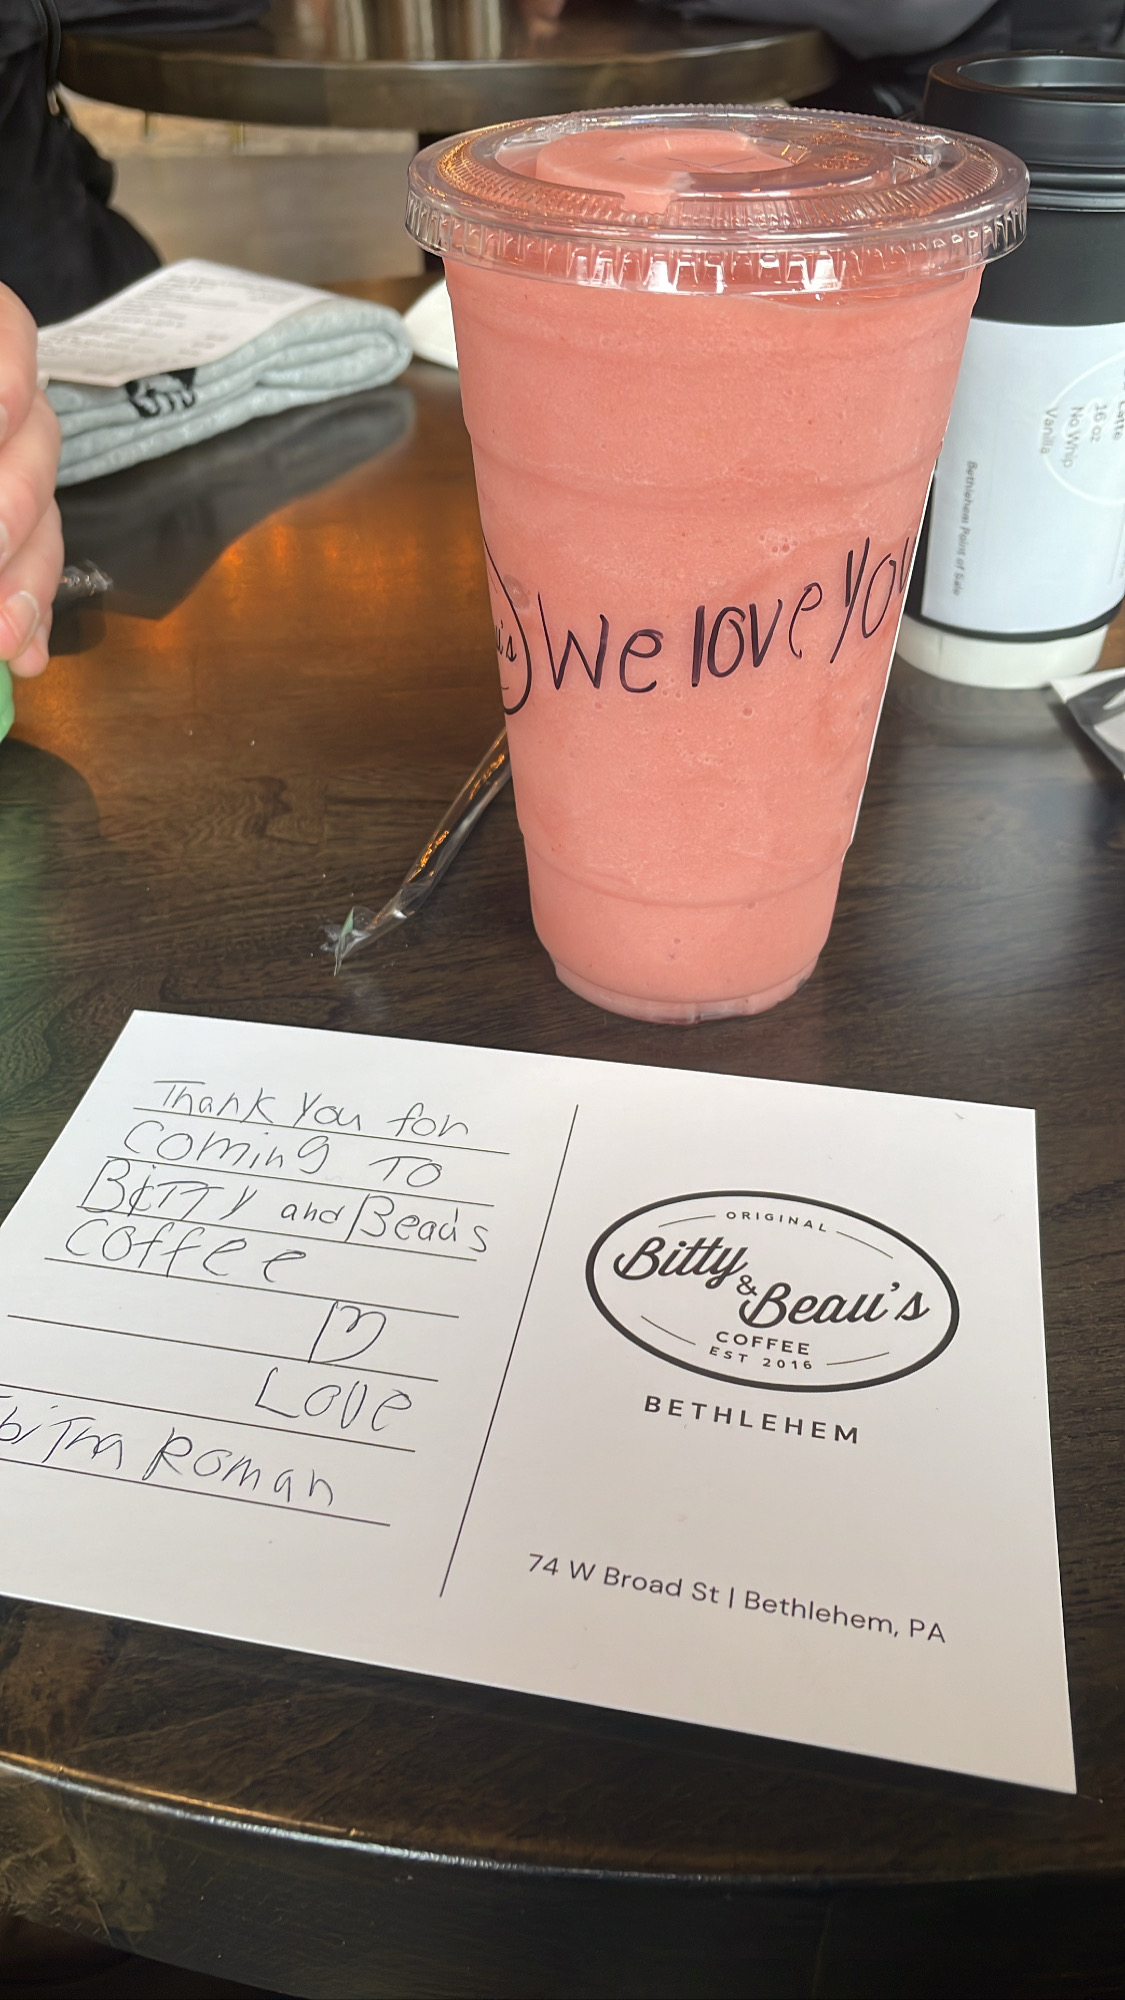 Latte
16 oz
No Whip
Vanilla
Bethlehem Point of Sale
We love you
Thank you for
coming To
BiTTy and Beau's
coffee
Love
Roman
ORIGINAL
Bitty
&
Beau's
COFFEE
EST 2016
BETHLEHEM
74 W Broad St | Bethlehem, PA